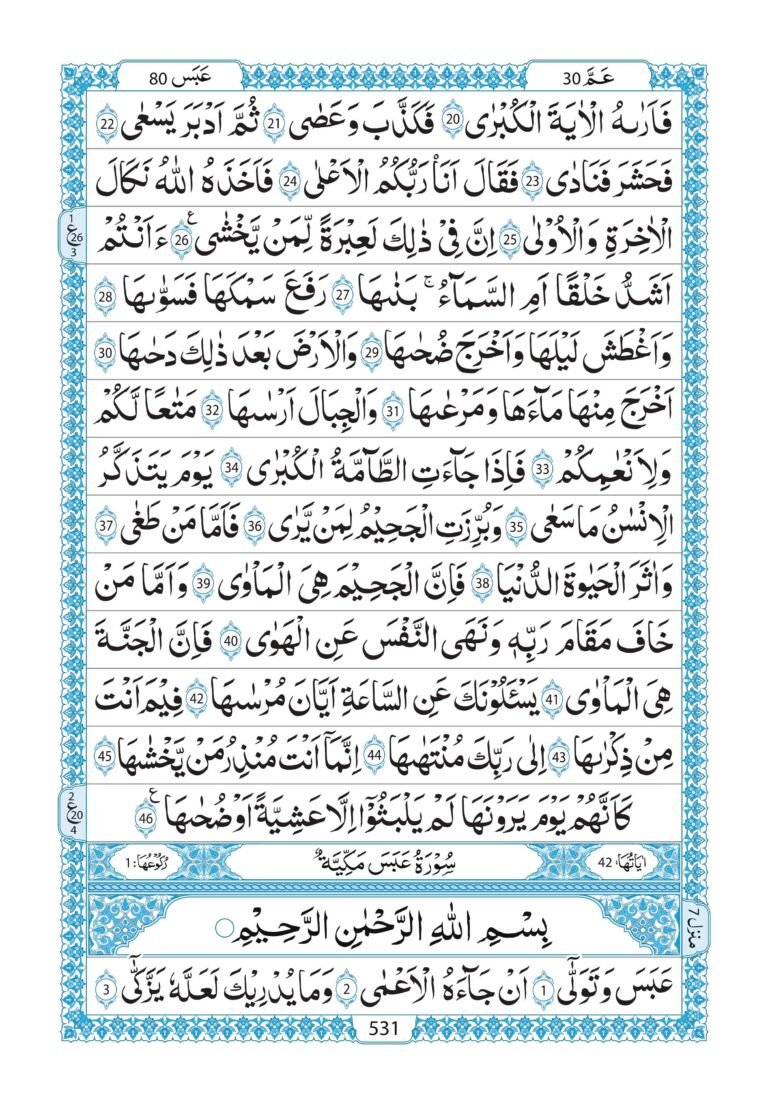 عَمَّ 30
عَبَسَ 80
فَاَرٰىهُ الْاٰيَةَ الْكُبْرٰى 20 فَكَذَّبَ وَعَصٰى 21 ثُمَّ اَدْبَرَ يَسْعٰى 22
فَحَشَرَ فَنَادٰى 23 فَقَالَ اَنَا۠ رَبُّكُمُ الْاَعْلٰى 24 فَاَخَذَهُ اللّٰهُ نَكَالَ
الْاٰخِرَةِ وَالْاُوْلٰى 25 اِنَّ فِيْ ذٰلِكَ لَعِبْرَةً لِّمَنْ يَّخْشٰى 26 ع ءَاَنْتُمْ
1
ع 26
3
اَشَدُّ خَلْقًا اَمِ السَّمَآءُ ۚ بَنٰىهَا 27 رَفَعَ سَمْكَهَا فَسَوّٰىهَا 28
وَاَغْطَشَ لَيْلَهَا وَاَخْرَجَ ضُحٰىهَا 29 وَالْاَرْضَ بَعْدَ ذٰلِكَ دَحٰىهَا 30
اَخْرَجَ مِنْهَا مَآءَهَا وَمَرْعٰىهَا 31 وَالْجِبَالَ اَرْسٰىهَا 32 مَتٰعًا لَّكُمْ
وَلِاَنْعٰمِكُمْ 33 فَاِذَا جَآءَتِ الطَّآمَّةُ الْكُبْرٰى 34 يَوْمَ يَتَذَكَّرُ
الْاِنْسٰنُ مَا سَعٰى 35 وَبُرِّزَتِ الْجَحِيْمُ لِمَنْ يَّرٰى 36 فَاَمَّا مَنْ طَغٰى 37
وَاٰثَرَ الْحَيٰوةَ الدُّنْيَا 38 فَاِنَّ الْجَحِيْمَ هِيَ الْمَاْوٰى 39 وَاَمَّا مَنْ
خَافَ مَقَامَ رَبِّهٖ وَنَهَى النَّفْسَ عَنِ الْهَوٰى 40 فَاِنَّ الْجَنَّةَ
هِيَ الْمَاْوٰى 41 يَسْـَٔلُوْنَكَ عَنِ السَّاعَةِ اَيَّانَ مُرْسٰىهَا 42 فِيْمَ اَنْتَ
مِنْ ذِكْرٰىهَا 43 اِلٰى رَبِّكَ مُنْتَهٰىهَا 44 اِنَّمَآ اَنْتَ مُنْذِرُ مَنْ يَّخْشٰىهَا 45
كَاَنَّهُمْ يَوْمَ يَرَوْنَهَا لَمْ يَلْبَثُوْٓا اِلَّا عَشِيَّةً اَوْ ضُحٰىهَا 46 ع
2
ع 20
4
اٰيَاتُهَا: 42
سُوْرَةُ عَبَسَ مَكِّيَّةٌ
رُكُوْعُهَا: 1
بِسْمِ اللّٰهِ الرَّحْمٰنِ الرَّحِيْمِ
منزل 7
عَبَسَ وَتَوَلّٰٓى 1 اَنْ جَآءَهُ الْاَعْمٰى 2 وَمَا يُدْرِيْكَ لَعَلَّهٗ يَزَّكّٰٓى 3
531